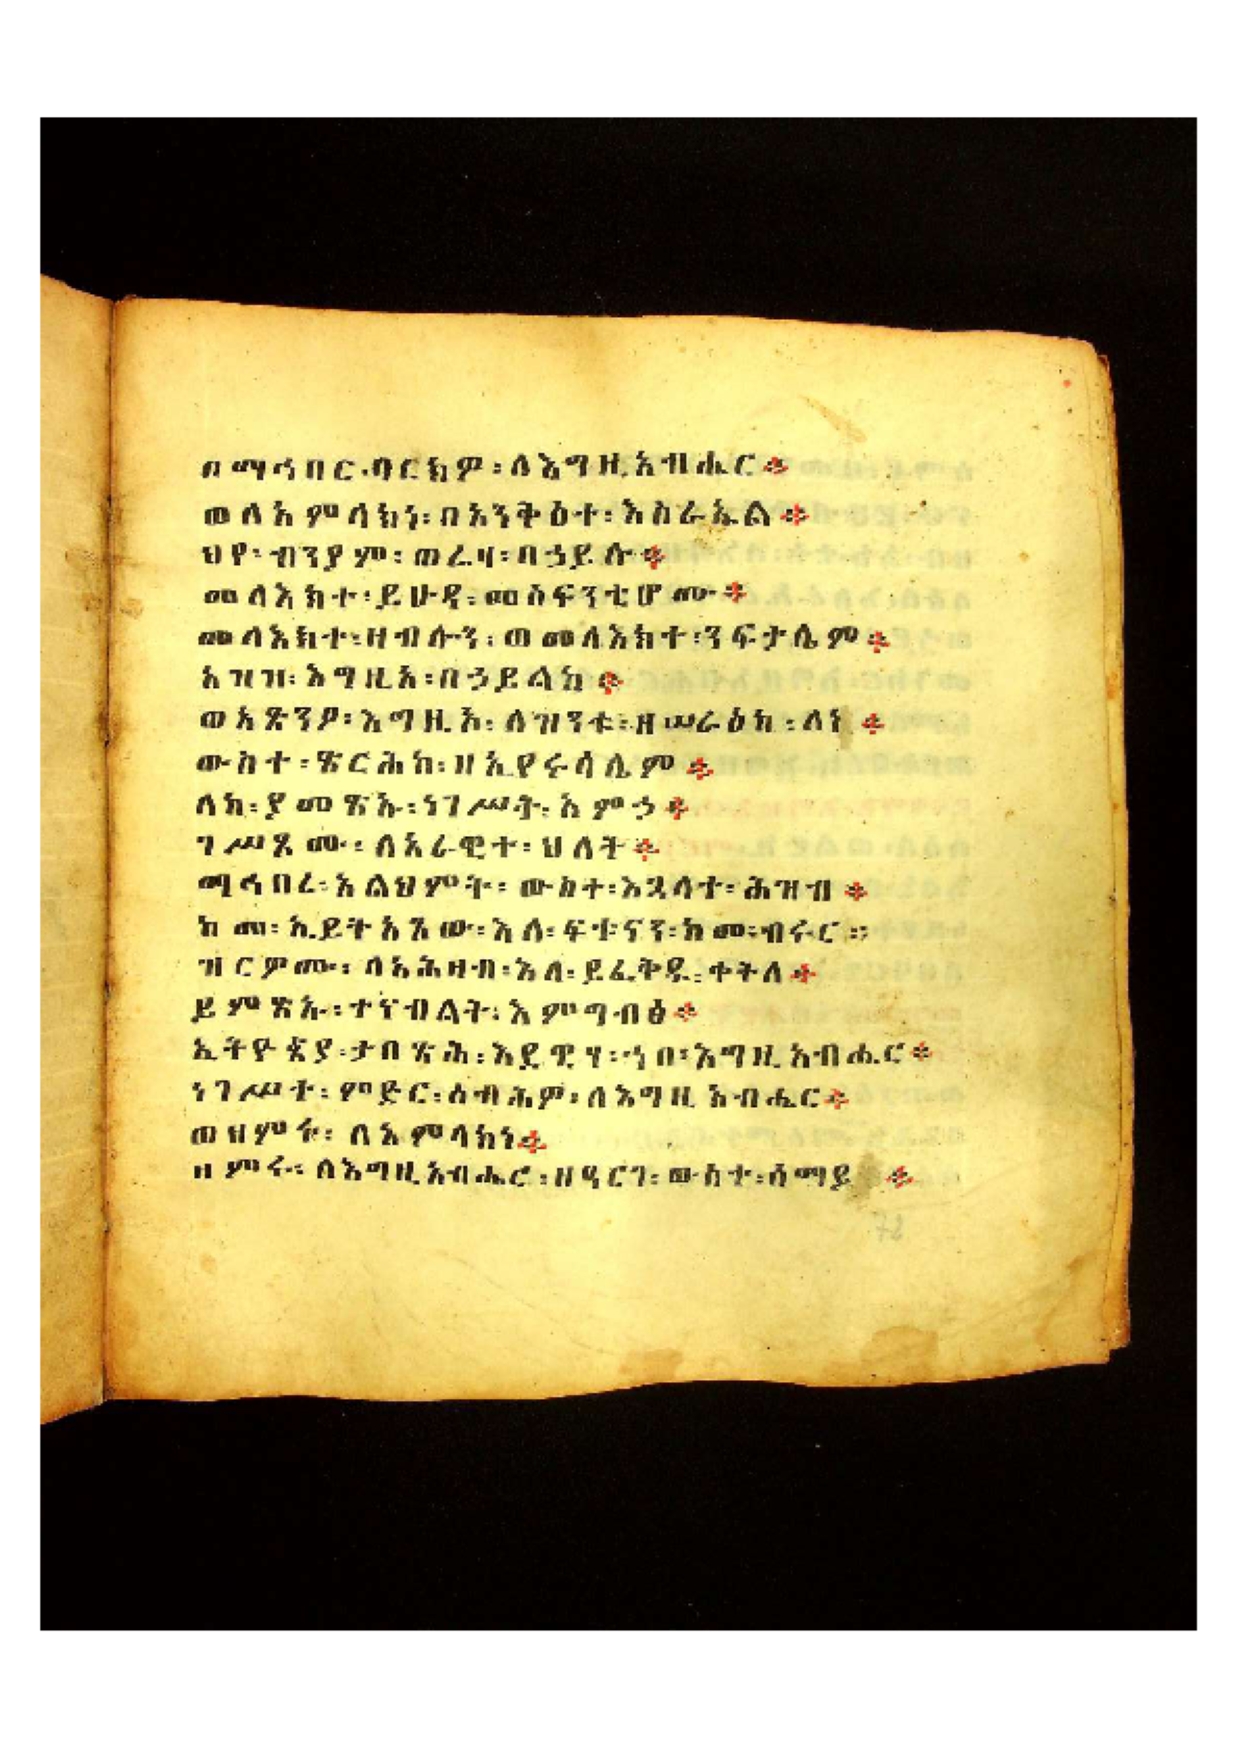 በማኅበር፡ባርክዎ፡ለእግዚአብሔር።
ወለአምላክነ፡በአንቅዕተ፡እስራኤል።
ህየ፡ብንያም፡ወሬዛ፡በኃይሉ።
መላእክተ፡ይሁዳ፡መስፍንቲሆሙ።
መላእክተ፡ዛብሎን፡ወመላእክተ፡ንፍታሌም።
አዝዝ፡እግዚአ፡በኃይልከ።
ወአጽንዖ፡እግዚአ፡ለዝንቱ፡ዘሠራዕከ፡ለነ።
ውስተ፡ጽርሕከ፡ዘኢየሩሳሌም።
ለከ፡ያመጽኡ፡ነገሥት፡አምኃ።
ገሥጾሙ፡ለአራዊተ፡ህለት።
ማኅበረ፡አልህምት፡ውስተ፡እጓላተ፡ሕዝብ።
ከመ፡ኢይትአጸው፡እለ፡ፍቱናን፡ከመ፡ብሩር።
ዝርዎሙ፡ለአሕዛብ፡እለ፡ይፈቅዱ፡ቀትለ።
ይምጽኡ፡ተናብልት፡እምግብፅ።
ኢትዮጵያ፡ታበጽሕ፡እደዊሃ፡ኀበ፡እግዚአብሔር።
ነገሥተ፡ምድር፡ሰብሕዎ፡ለእግዚአብሔር።
ወዘምሩ፡ለአምላክነ።
ዘምሩ፡ለእግዚአብሔር፡ዘዓርገ፡ውስተ፡ሰማይ።